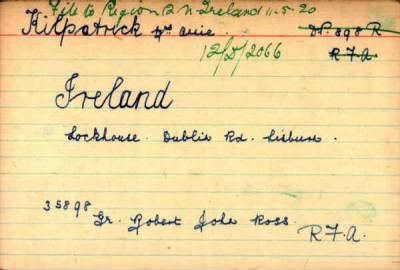 File to Region 2 N. Ireland 11-5-20
Kilpatrick Mrs Avie. D.P. 898 R
12/D/2066 R.7.A
Ireland
Lockhouse. Dublin Rd. Lisburn.
35898
Gr. Robert John Ross.
R.7.A.